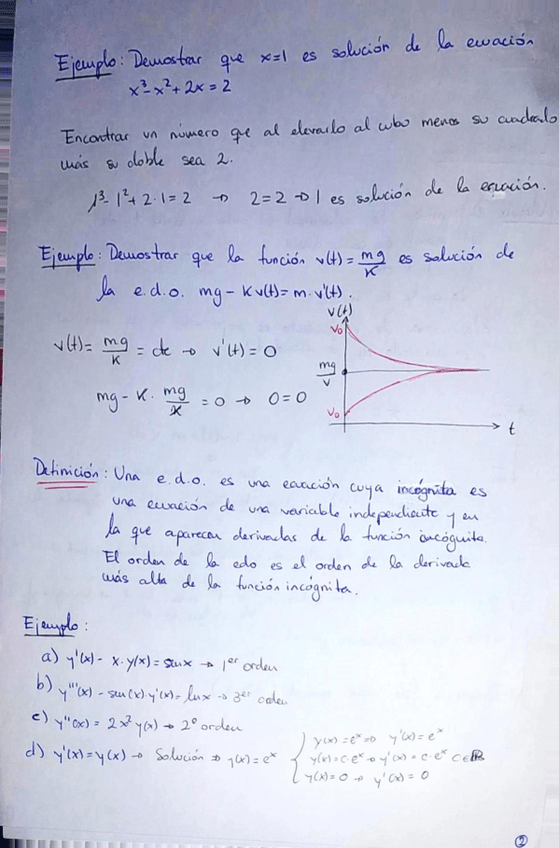 Ejemplo: Demostrar que x=1 es solución de la ecuación
x³-x²+2x=2
Encontrar un número que al elevarlo al cubo menos su cuadrado
más su doble sea 2.
1³-1²+2·1=2 → 2=2 → 1 es solución de la ecuación.
Ejemplo: Demostrar que la función v(t)=mg/K es solución de
la e.d.o. mg-Kv(t)=m·v'(t).
v(t)=mg/K=cte → v'(t)=0
mg-K·mg/K=0 → 0=0
v(t)
v₀
mg/V
v₀
t
Definición: Una e.d.o. es una ecuación cuya incógnita es
una ecuación de una variable independiente y en
la que aparecen derivadas de la función incógnita.
El orden de la edo es el orden de la derivada
más alta de la función incógnita.
Ejemplo:
a) y'(x)-x·y(x)=senx → 1er orden
b) y'''(x)-sen(x)y'(x)=lnx → 3er orden
c) y''(x)=2x²y(x) → 2º orden
d) y'(x)=y(x) → Solución ⇒ y(x)=eˣ
y(x)=eˣ ⇒ y'(x)=eˣ
y(x)=c·eˣ → y'(x)=c·eˣ C∈ℝ
y(x)=0 → y'(x)=0
2